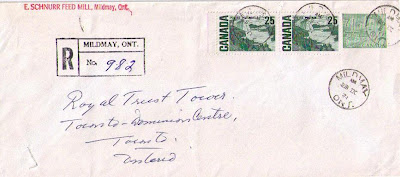 E. SCHNURR FEED MILL, Mildmay, Ont.
CANADA 25
CANADA 25
R
MILDMAY, ONT.
No. 982
MILDMAY
ONT.
Royal Trust Tower
Toronto-Dominion Centre,
Toronto
Ontario